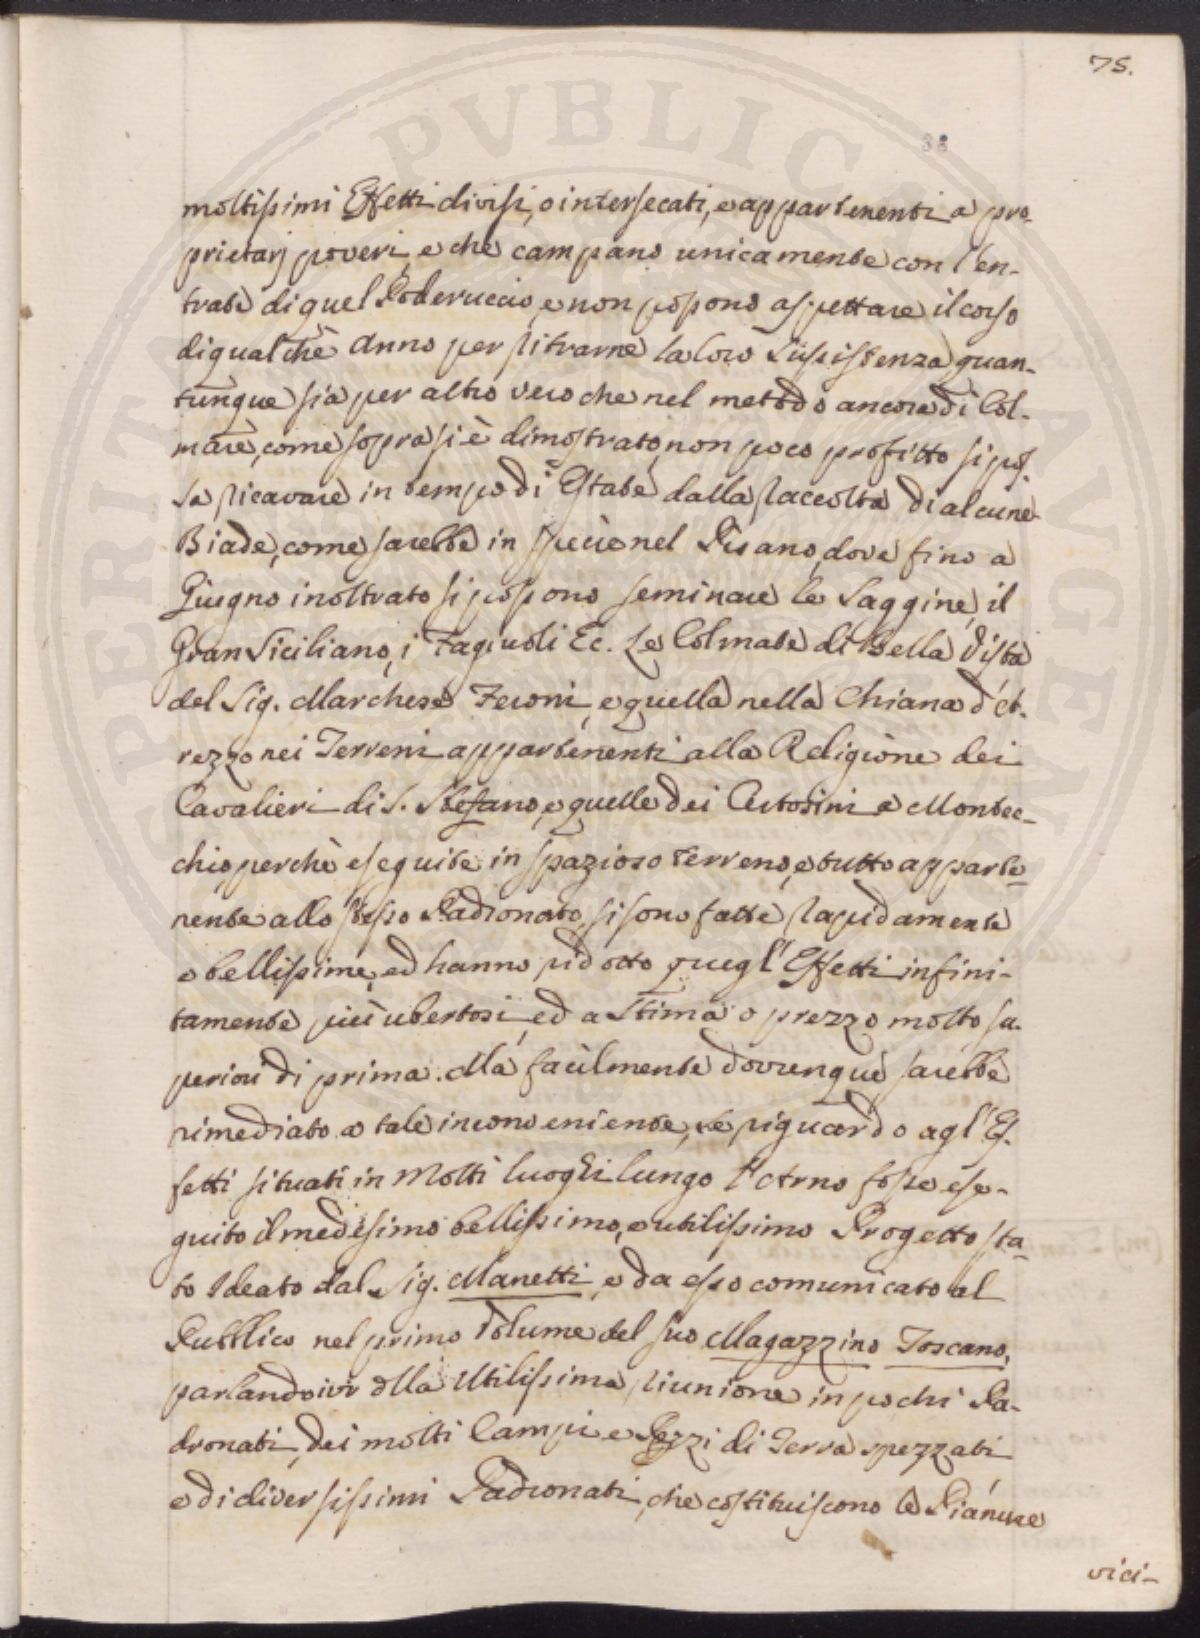 75.
38
moltissimi Effetti divisi, o intersecati, e appartenenti a pro-
prietarj poveri, e che campano unicamente con l'en-
trate di quel Poderuccio, e non possono aspettare il corso
di qualche Anno per ritrarne la loro Sussistenza, quan-
tunque sia per altro vero che nel metodo ancora di Col-
mare, come sopra si è dimostrato, non poco profitto si pos-
sa ricavare in tempo di Estate dalla raccolta di alcune
Biade, come sarebbe in specie nel Pisano, dove fino a
Giugno inoltrato si possono seminare le Saggine, il
Gran Siciliano, i Fagiuoli Ec. Le Colmate di Bella Vista
del Sig. Marchese Feroni, e quella nella Chiana d'A-
rezzo nei Terreni appartenenti alla Religione dei
Cavalieri di S. Stefano, e quelle dei Certosini a Montec-
chio, perchè eseguite in spazioso terreno, e tutto apparte-
nente allo stesso Padronato, si sono fatte rapidamente
e bellissime, ed hanno ridotto quegl'Effetti infini-
tamente più ubertosi, ed a Stima o prezzo molto su-
periori di prima. Ma facilmente dovunque sarebbe
rimediato a tale inconveniente, se riguardo agl'Ef-
fetti situati in Molti luoghi lungo l'Arno fosse ese-
guito il medesimo bellissimo, e utilissimo Progetto sta-
to Ideato dal Sig. Manetti, e da esso comunicato al
Pubblico nel primo Volume del suo Magazzino Toscano,
parlando ivi della Utilissima riunione in pochi Pa-
dronati, dei molti Campi e Pezzi di Terra spezzati
e di diversissimi Padronati, che costituiscono le Pianure
vici-